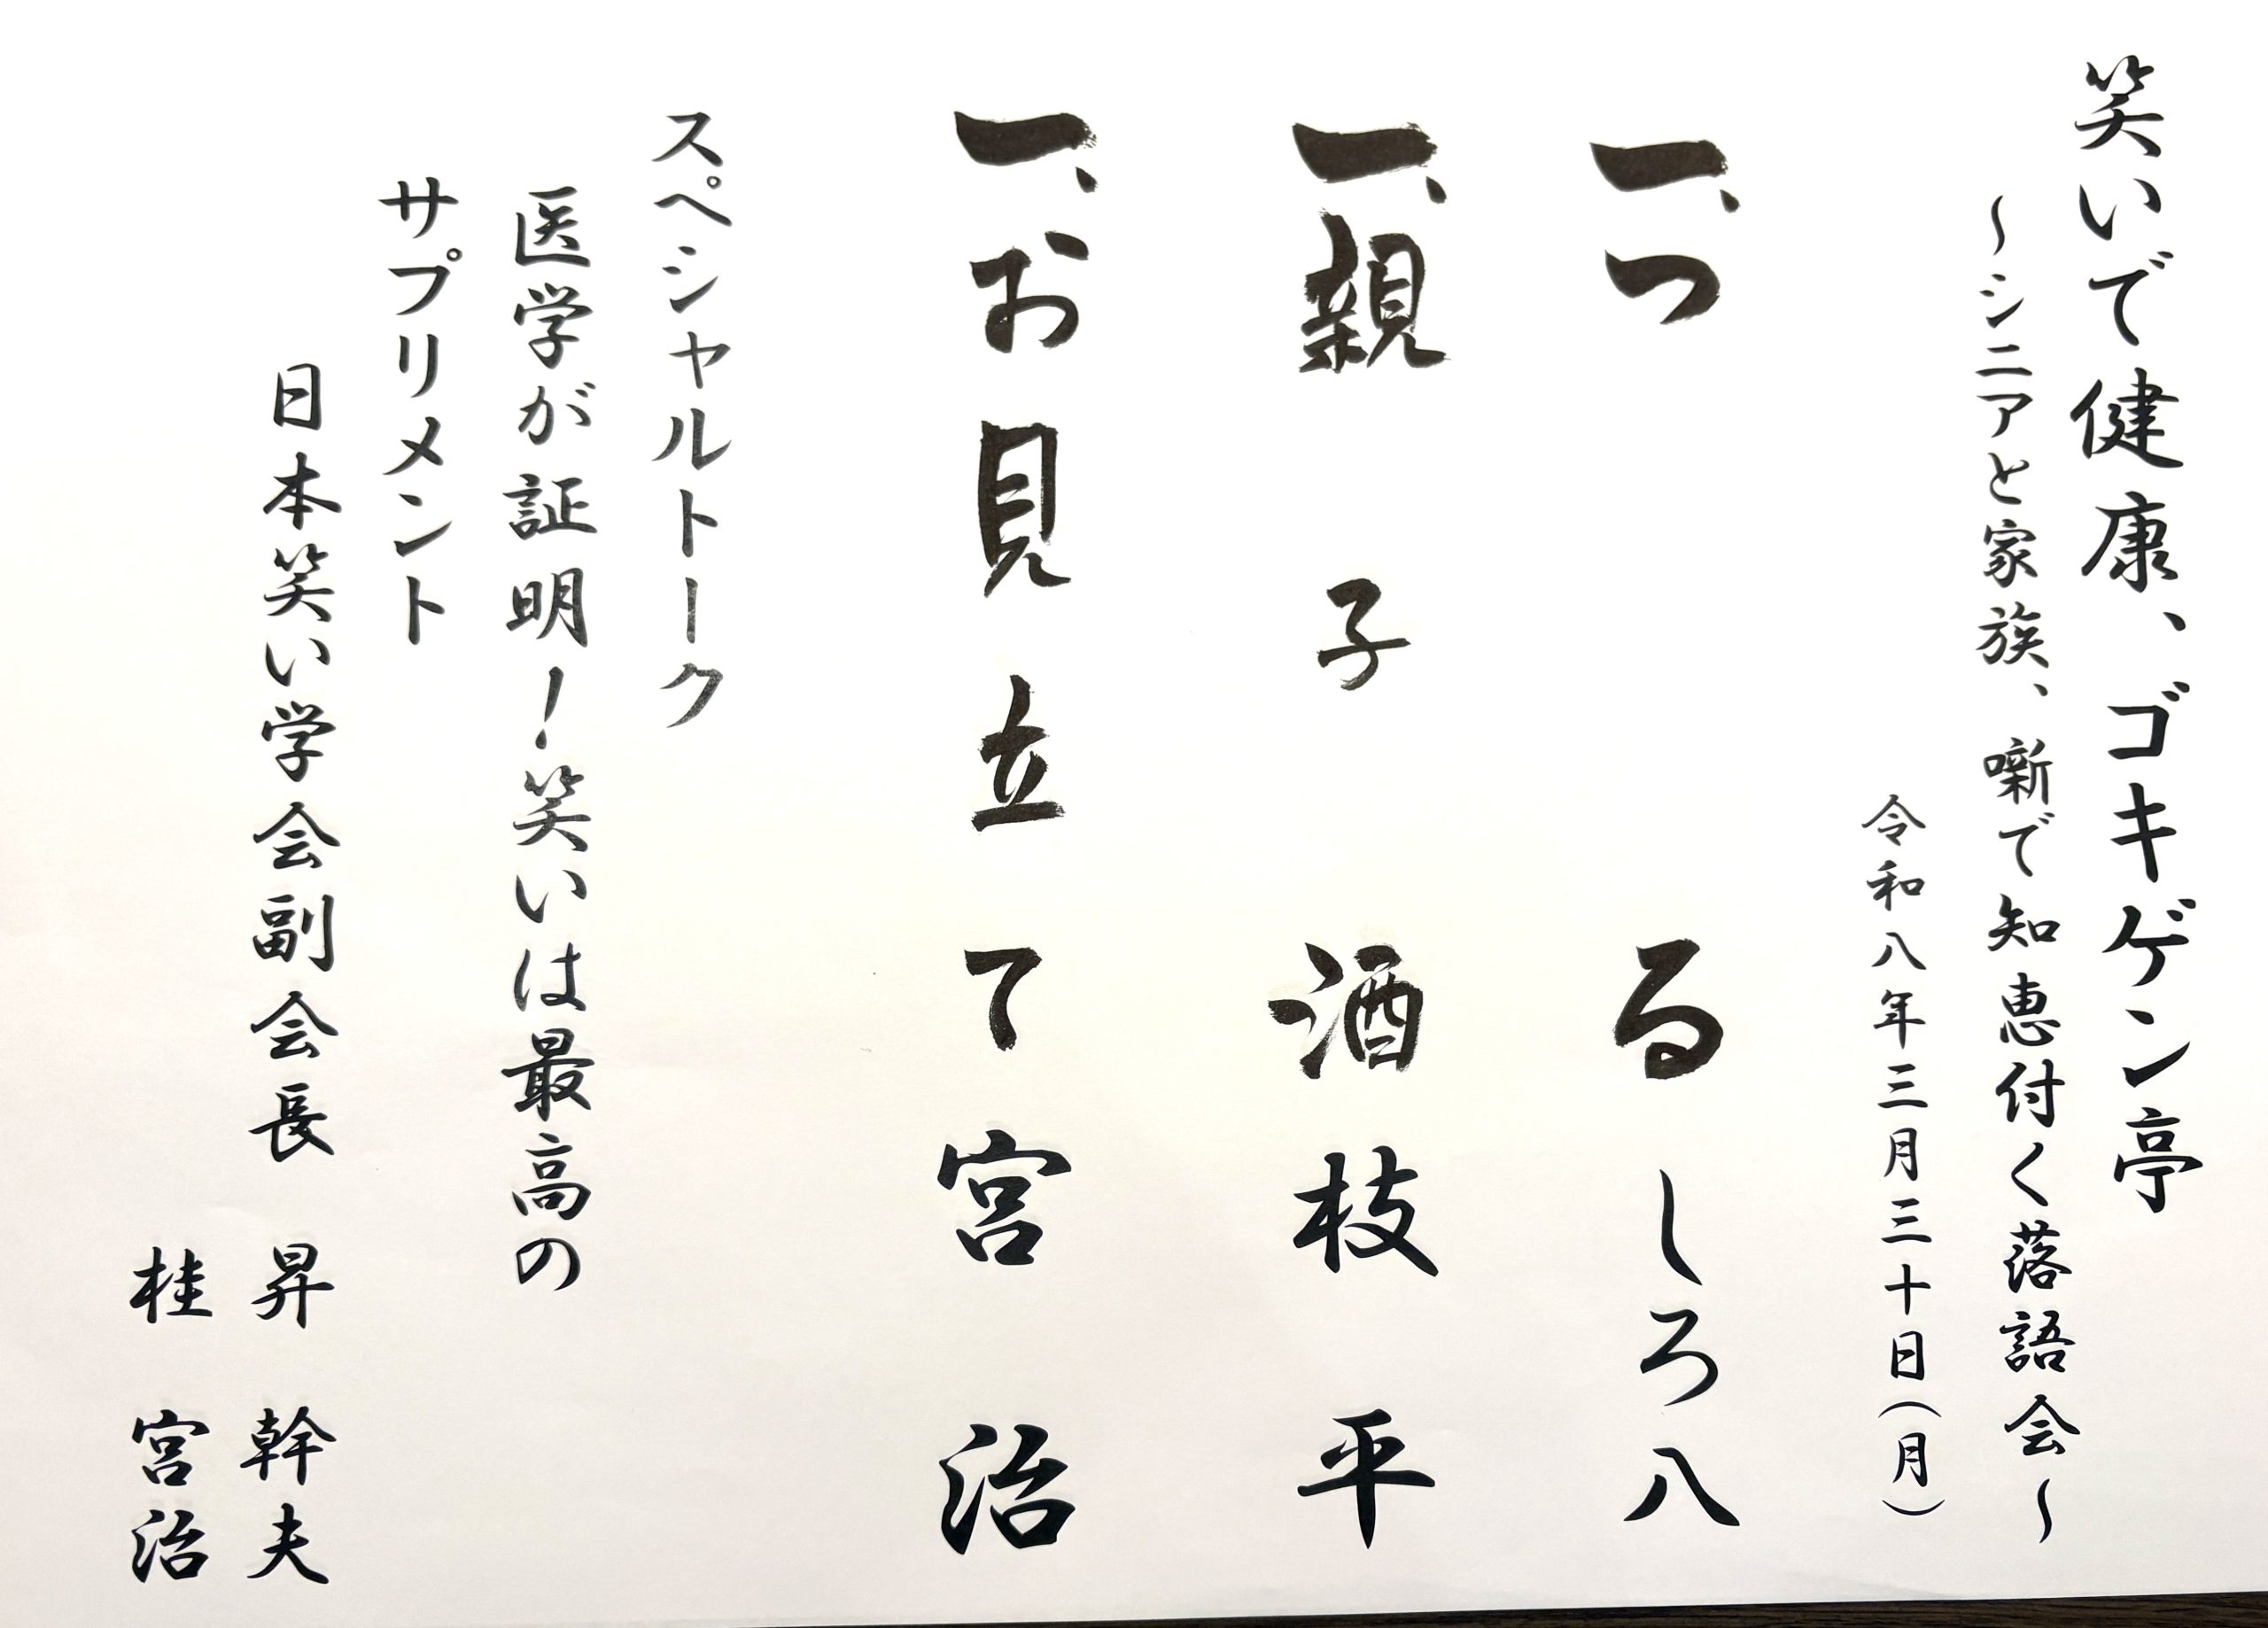 笑いで健康、ゴキゲン亭
～シニアと家族、噺で知恵付く落語会～
令和八年三月三十日(月)
一、つる しろ八
一、親子酒 枝平
一、お見立て 宮治
スペシャルトーク
医学が証明!笑いは最高の
サプリメント
日本笑い学会副会長 昇 幹夫
桂 宮治